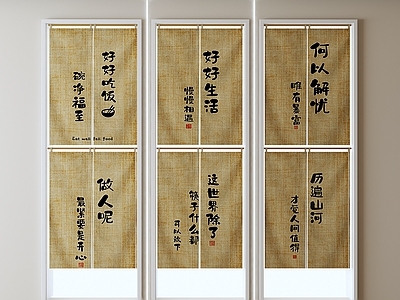 好好吃饭
碗净福至
Eat well Full food
好好生活
慢慢相遇
何以解忧
唯有暴富
做人呢
最紧要是开心
这世界除了
筷子什么都
可以放下
历遍山河
才觉人间值得